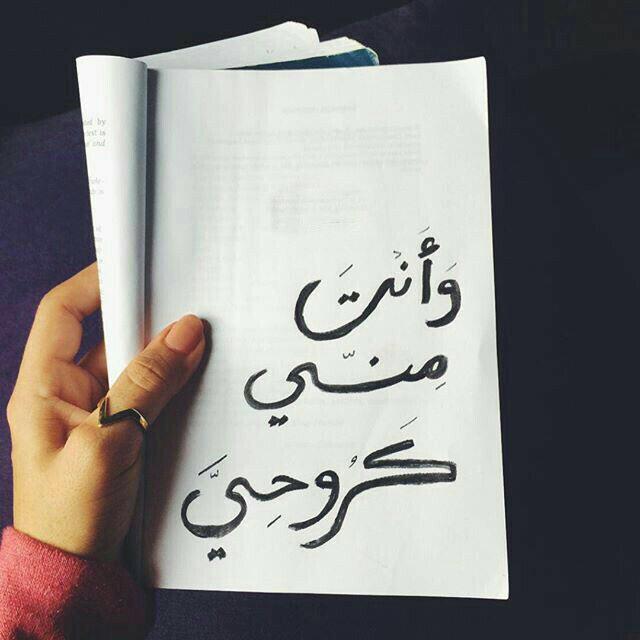 وَأَنْتَ
مِنّي
كَرُوحِيَّ
ted by
text is
and